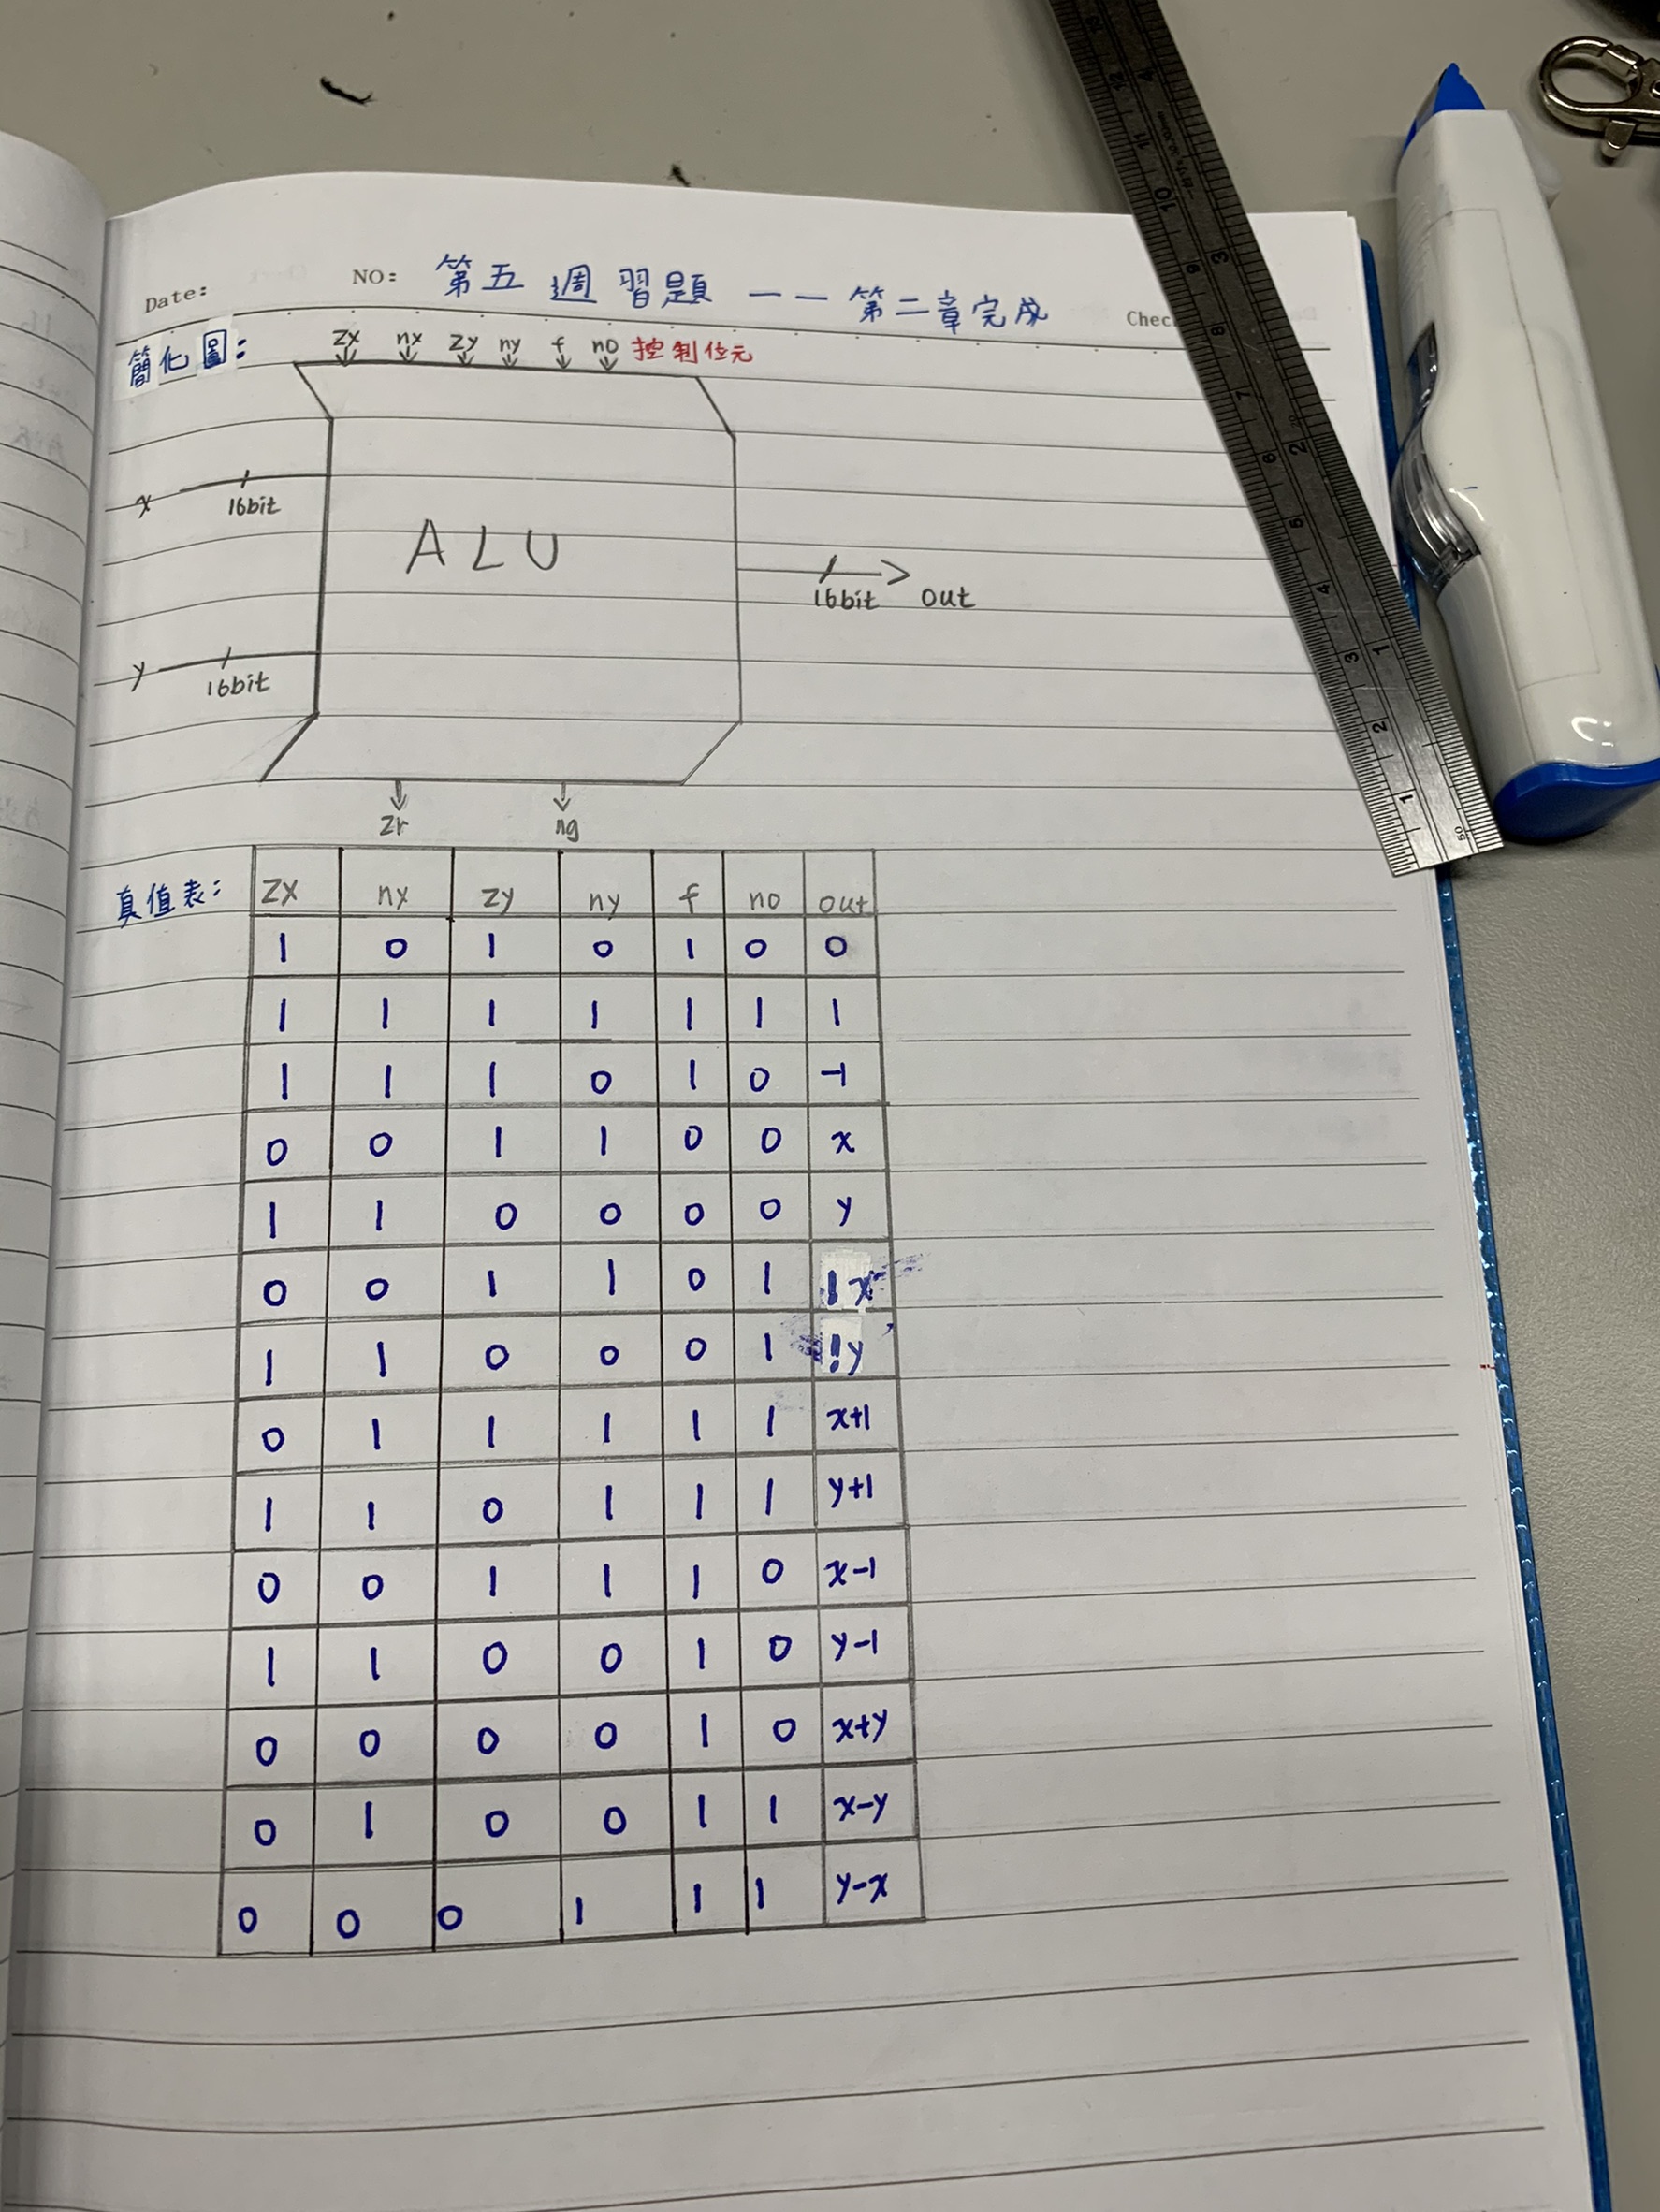 Date: NO: 第五週習題 —— 第二章完成
簡化圖: zx nx zy ny f no 控制位元
x 16bit
ALU
16bit out
y 16bit
zr ng
真值表: zx nx zy ny f no out
1 0 1 0 1 0 0
1 1 1 1 1 1 1
1 1 1 0 1 0 -1
0 0 1 1 0 0 x
1 1 0 0 0 0 y
0 0 1 1 0 1 !x
1 1 0 0 0 1 !y
0 1 1 1 1 1 x+1
1 1 0 1 1 1 y+1
0 0 1 1 1 0 x-1
1 1 0 0 1 0 y-1
0 0 0 0 1 0 x+y
0 1 0 0 1 1 x-y
0 0 0 1 1 1 y-x